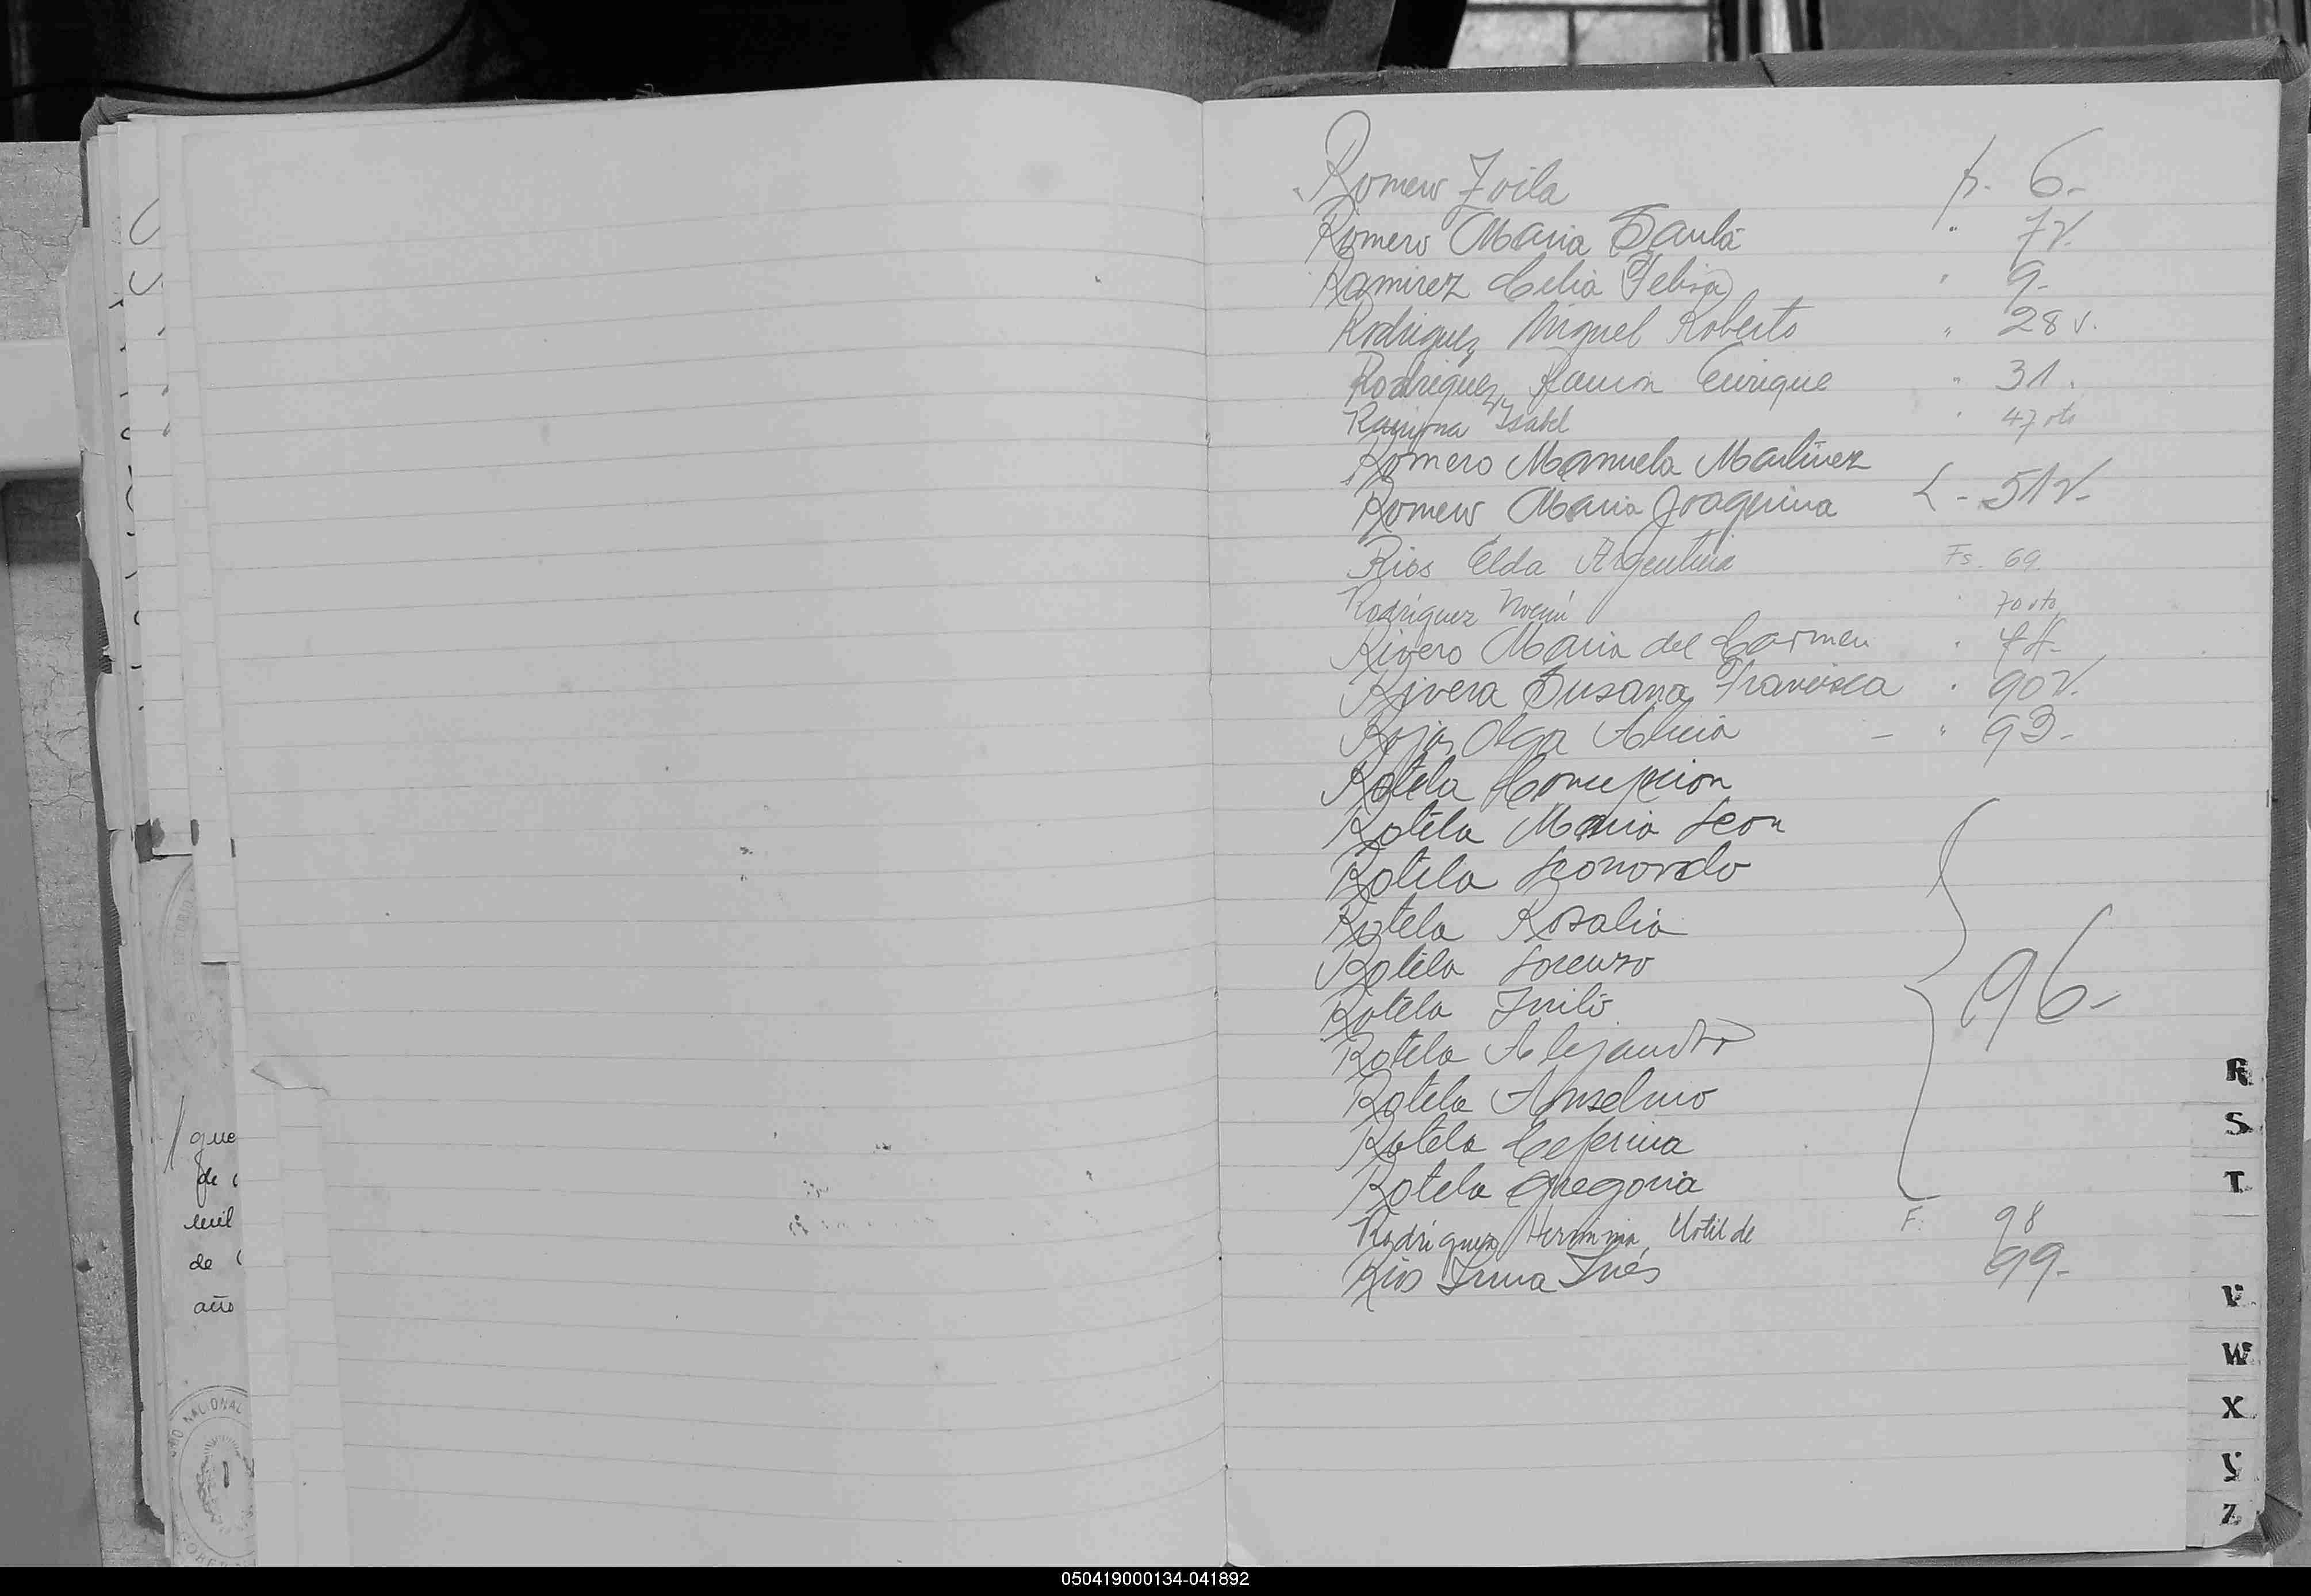 que
de
mil
de
año
NACIONAL
Romero Zoila f. 6-
Romero Maria Paula " 7v.
Ramirez Celia Felisa " 9-
Rodriguez Miguel Roberto " 28 v.
Rodriguez, Ramon Enrique " 31.
Isabel " 47 vto
Romero Manuela Martinez
Romero Maria Joaquina 51v-
Rios Elda Argentina Fs. 69.
Rodríguez Noemí " 70 vto
Rivero Maria del Carmen "
Rivera Susana Francisca " 90v.
Rojas Olga Alicia - " 93-
Rotela Concepcion
Rotela Maria Leon
Rotela Leonardo
Rotela Rosalia
Rotela Lorenzo
Rotela
Rotela Alejandro
Rotela Anselmo
Rotela Ceferina
Rotela Gregoria
96-
Rodriguez Herminia F. 98
Rios Irma Inés 99-
R
S
T
V
W
X
Y
Z
050419000134-041892